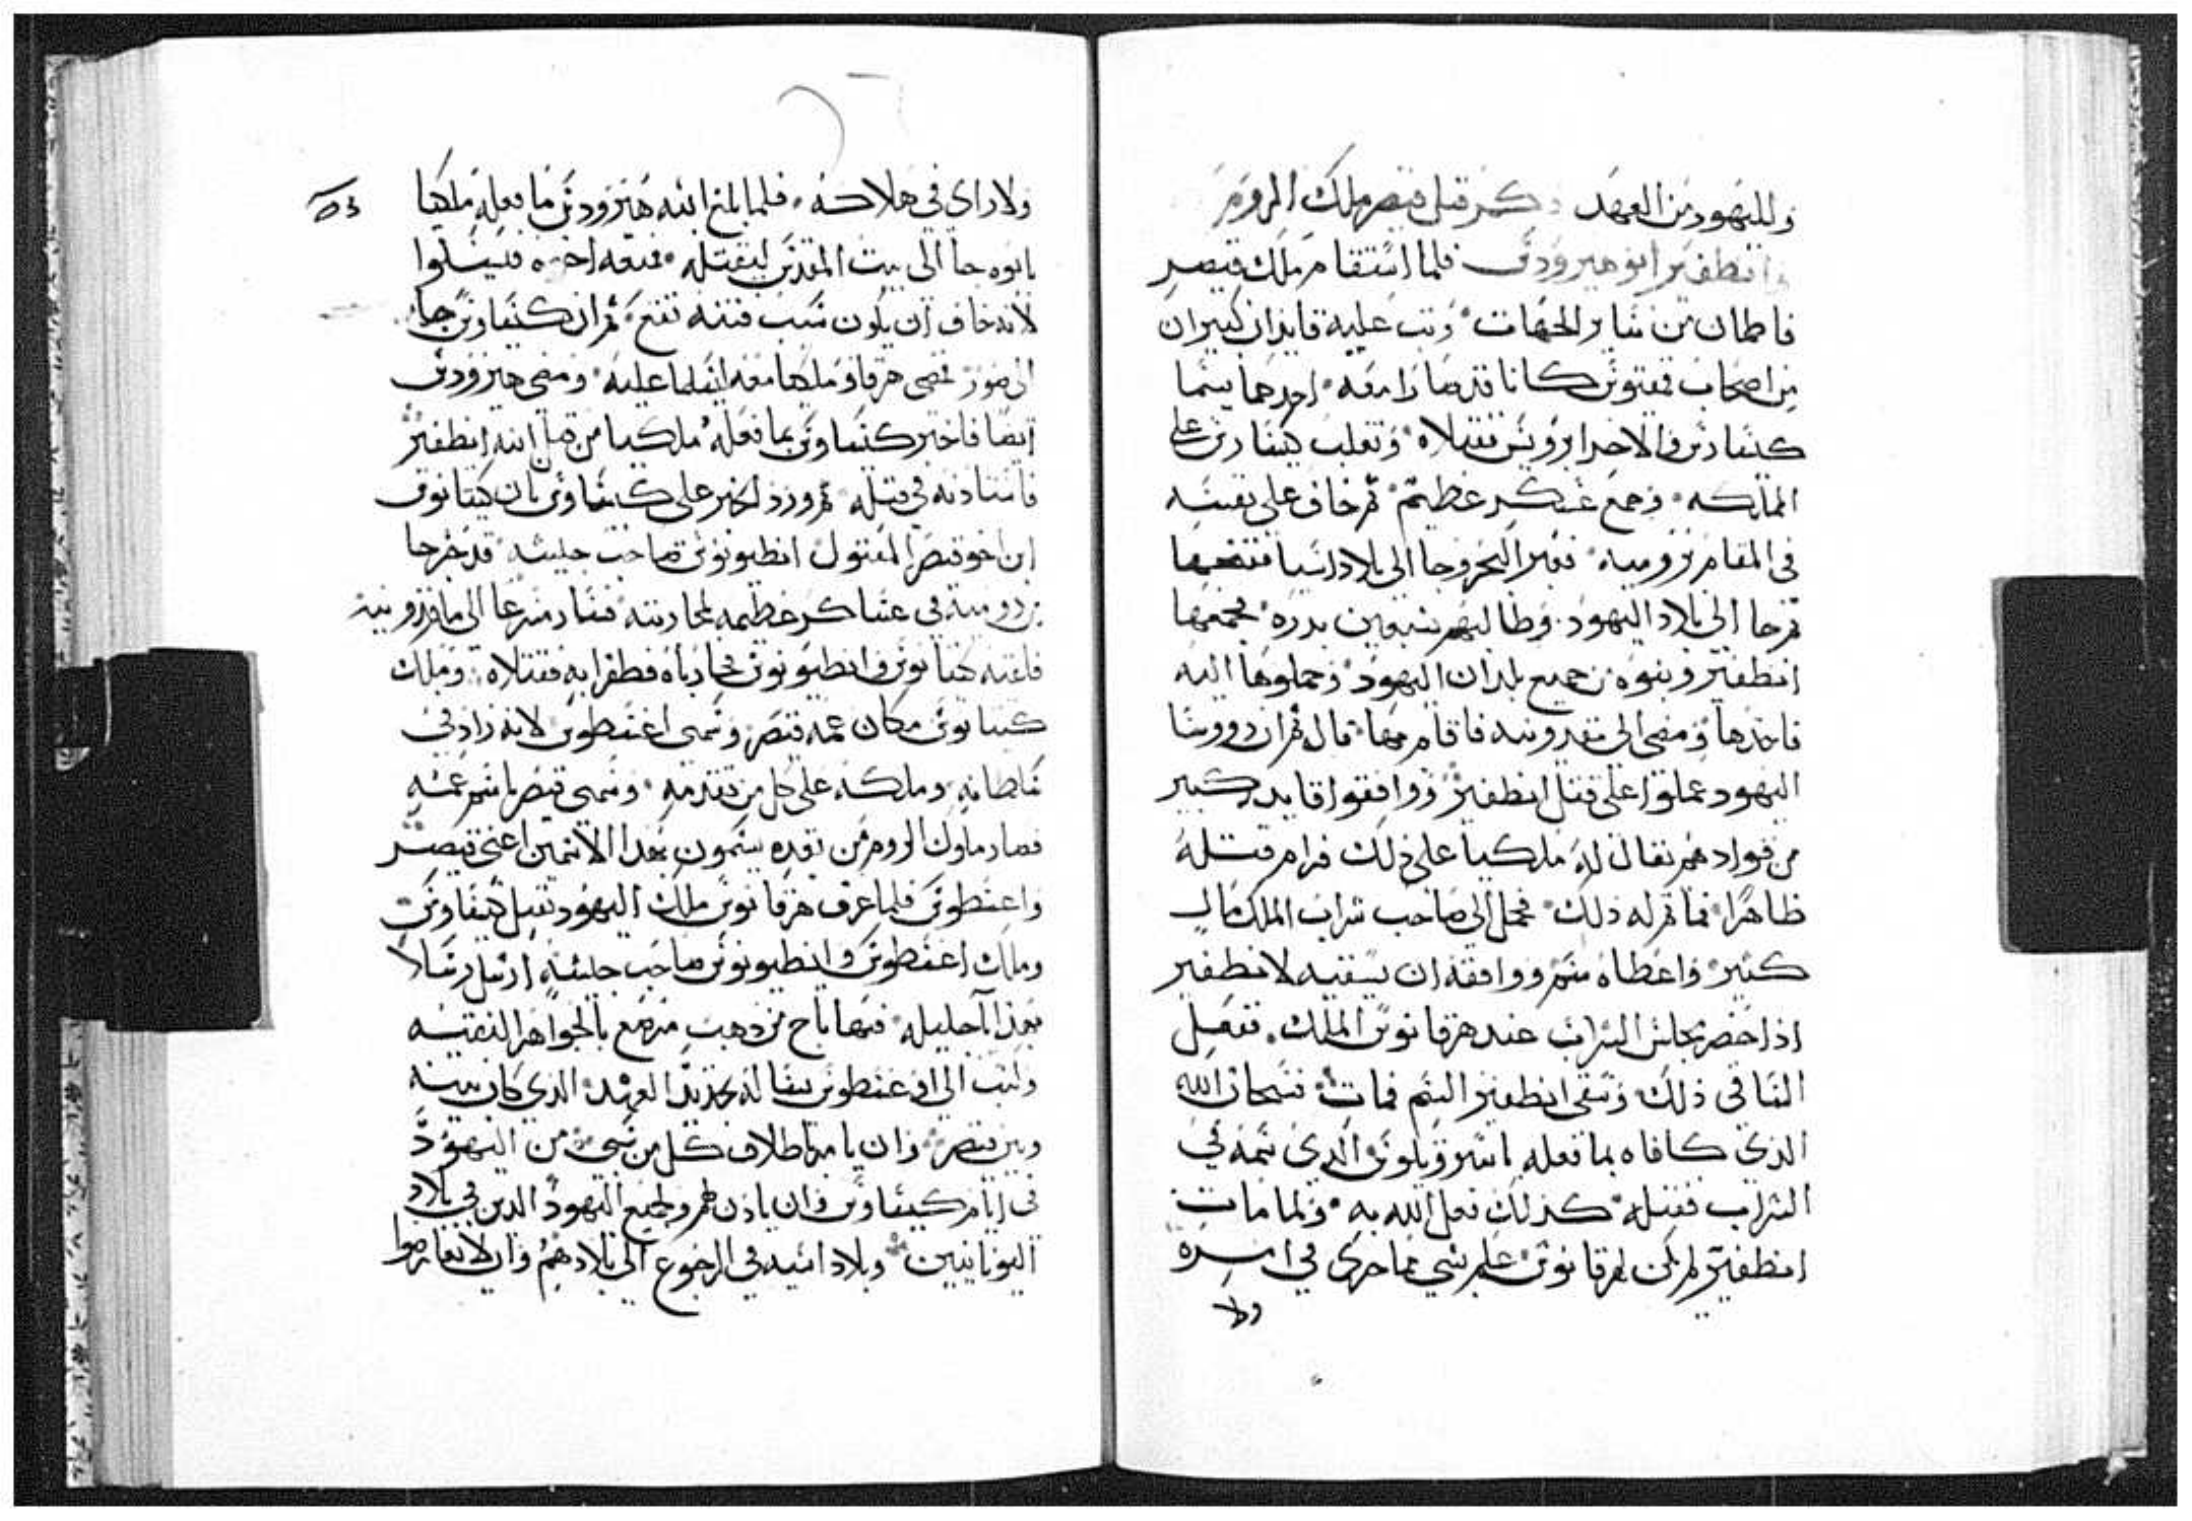 ولليهود من العهد ذكر قتل قيصر ملك الروم
وانطفتر ابو هيرودس فلما استقام ملك قيصر
فاطمان من ساير الجهات وثب عليه قايدان كبيران
من اصحاب فمتوس كانا قد صارا معه احدهما يسما
كيساوس والاخر ابرويس فقتلاه وتغلب كيساوس على
المملكه وجمع عسكر عظيم ثم خاف على نفسه
في المقام برومية فعبر البحر وجا الى بلاد اسيا ففتحها
ثم جا الى بلاد اليهود وطالبهم بسبعين بدره فجمعها
انطفتر وبنوه من جميع بلدان اليهود وحملوها اليه
فاخذها ومضى الى مقدونيه فاقام بها قال ثم ان رووسا
اليهود عملوا على قتل انطفتر ووافقوا قايد كبير
من قوادهم يقال له ملكيا على ذلك فرام قتله
ظاهرا فما تم له ذلك فحمل الى صاحب شراب الملك مال
كثير واعطاه سم ووافقه ان يسقيه لانطفتر
اذا حضر مجلس الشراب عند هرقانوس الملك ففعل
الساقي ذلك وسقى انطفتر السم فمات فسبحان الله
الذي كافاه بما فعله باسروبلوس الذي سمه في
الشراب فقتله كذلك فعل الله به ولما مات
انطفتر لم يكن لهرقانوس علم بشي مما جرى في امره
ولا
ولا راى في هلاكه فلما بلغ ابنه هيرودس ما فعله ملكيا
بابوه جا الى بيت المقدس ليقتله فمنعه اخوه
لانه خاف ان يكون سبب فتنه تقع ثم ان كيساوس جا
الى صور فمضى هرقانوس وملكيا معه ليسلما عليه ومضى هيرودس
ايضا فاخبر كيساوس بما فعله ملكيا من قتل ابيه انطفتر
فاستاذنه في قتله ثم ورد الخبر على كيساوس بان كتيانوس
ابن اخو قيصر المقتول انطيونوس صاحب جليشه قد خرجا
من رومية في عساكر عظيمه لمحاربته فسار مسرعا الى ماقدونيه
فلقيه كتيانوس وانطيونوس فحارباه فظفرا به فقتلاه وملك
كتيانوس مكان عمه قيصر وتسمى اغسطوس لانه زاد في
سلطانه وملكه على كل من تقدمه وتسمى قيصر باسم عمه
فصار ملوك الروم من بعده يتسمون بهذا الاسمين اعني قيصر
واغسطوس فلما عرف هرقانوس ملك اليهود بقتل كيساوس
وملك اغسطوس وانطيونوس صاحب جليشه ارسل رسلا
بهدايا جليله فيها تاج من ذهب مرصع بالجواهر النفيسه
وكتب الى اغسطوس يساله تجديد العهد الذي كان بينه
وبين قيصر وان يامر باطلاق كل من سبي من اليهود
في ايام كيساوس وان ياذن لهم ولجميع اليهود الذين في بلاد
اليونانيين وبلاد اسيه في الرجوع الى بلادهم وان لا يعارضوا